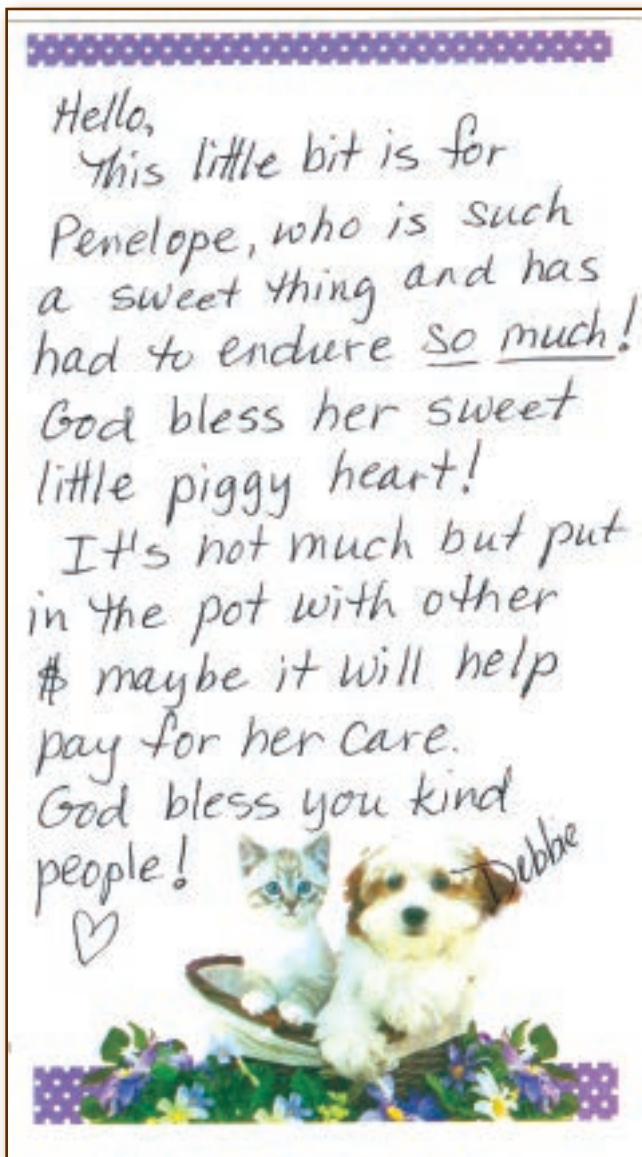 Hello,
This little bit is for
Penelope, who is such
a sweet thing and has
had to endure so much!
God bless her sweet
little piggy heart!
It's not much but put
in the pot with other
$ maybe it will help
pay for her care.
God bless you kind
people!
Debbie